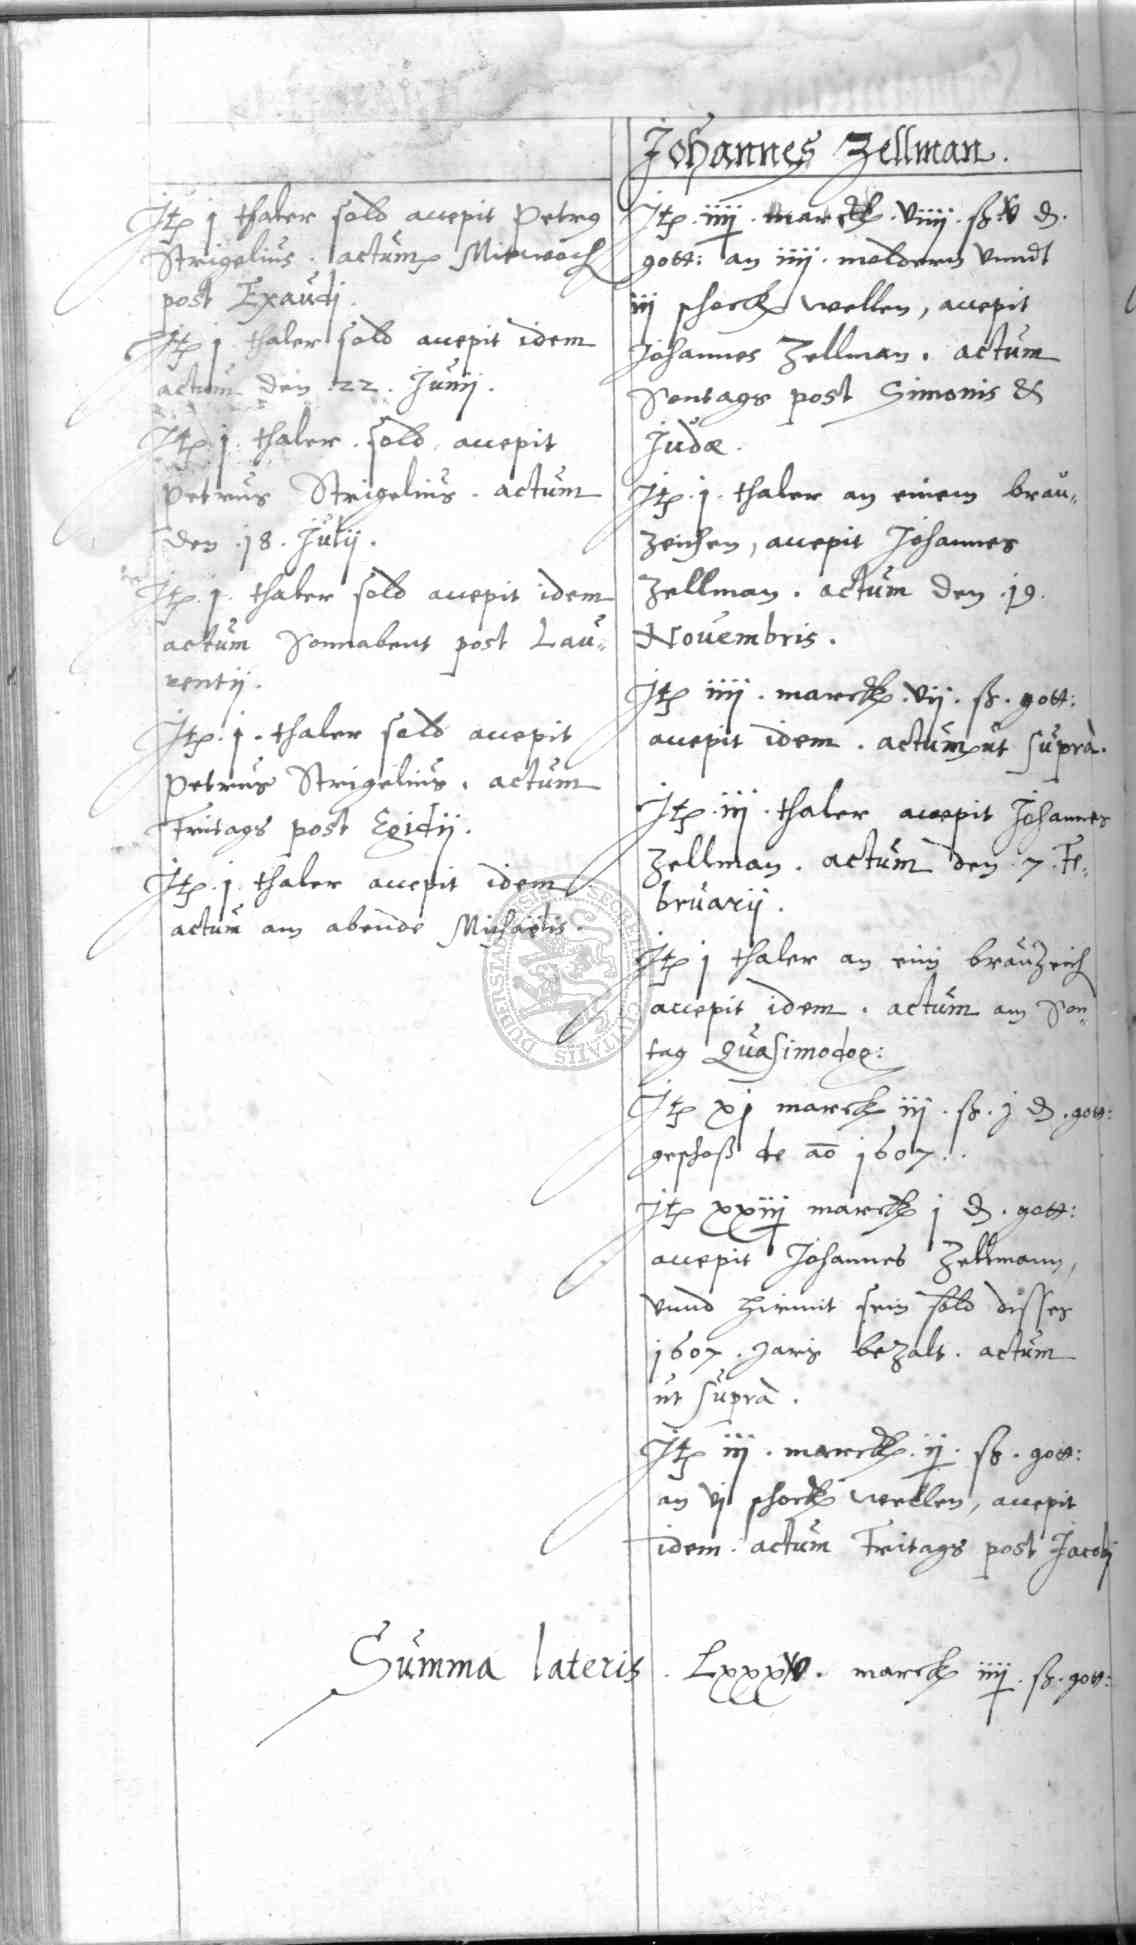 Johannes Zellman.
Jtp j thaler sold accepit Petrus
Strigelius. actum Mitwoch
post Exaudj.
Jtp j thaler sold accepit idem
actum den .22. Junij.
Jtp .j. thaler. sold accepit
Petrus Strigelius. actum
den .18. Julij.
Jtp .j. thaler sold accepit idem
actum Sonnabent post Lau-
rentij.
Jtp .j. thaler sold accepit
Petrus Strigelius. actum
Fritags post Egidij.
Jtp .j. thaler accepit idem
actum am abende Michaelis.
Jtp .iiij. marck. viiij. ß. d.
gott: an iiij. moldern vnndt
iij schock wellen, accepit
Johannes Zellman. actum
Sontags post Simonis &
Judæ.
Jtp .j. thaler an einem brau-
zeichen, accepit Johannes
Zellman. actum den .19.
Novembris.
Jtp iiij. marck. vij. ß. gott:
accepit idem. actum ut supra.
Jtp .iij. thaler accepit Johannes
Zellman. actum den .7. Fe-
bruarij.
Jtp j thaler an eim brauzeich
accepit idem. actum am Son-
tag Quasimodog:
Jtp xj marck iij. ß. j d. gott:
geschoß de ao 1607.
Jtp xxiij marck j d. gott:
accepit Johannes Zellmann,
vnnd hirmit sein sold disses
1607. Jars bezalt. actum
ut supra.
Jtp iij. marck. ij. ß. gott:
an vj schock wellen, accepit
idem. actum Fritags post Jacobj
Summa lateris. Lxxxv. marck iiij. ß. gott: